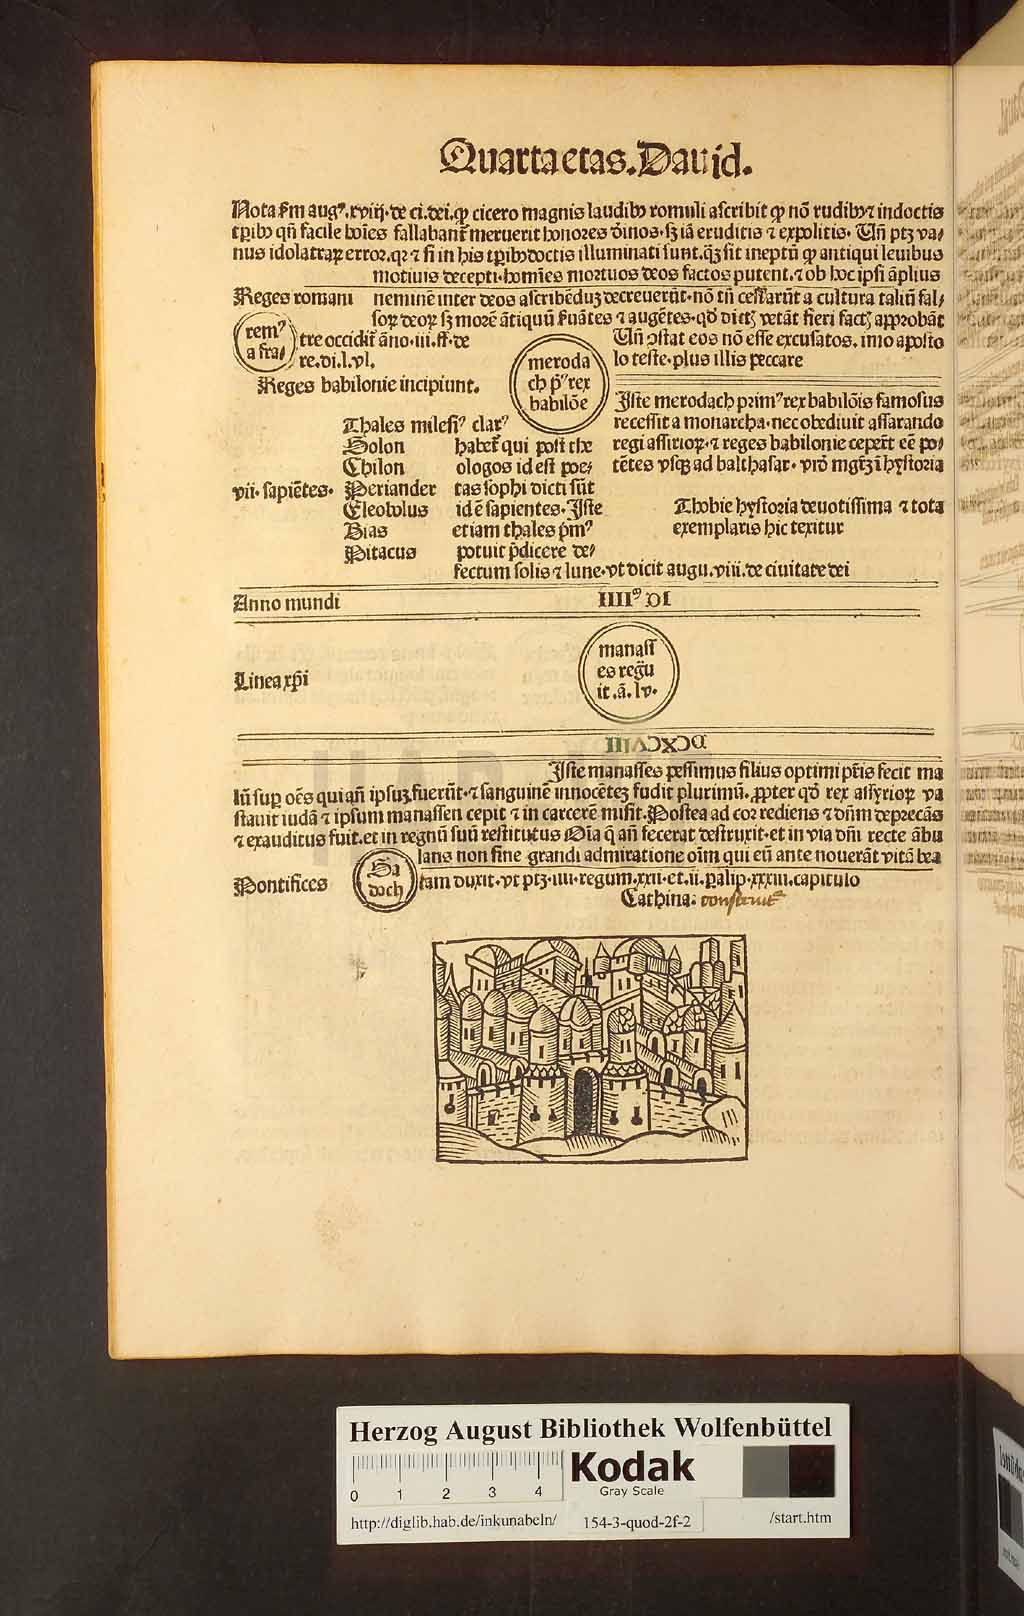 Quarta etas. Dauid.
Nota ẜm augꝰ. xviij. de ci. dei. ꝙ cicero magnis laudibꝰ romuli ascribit ꝙ nō rudibꝰ ⁊ indoctis
tꝑibꝰ qñ facile hoīes fallabant᷑ meruerit honores diuīos. sꝫ iā eruditis ⁊ expolitis. Uñ ptꝫ va⸗
nus idolatraꝝ error. qꝛ ⁊ si in his tꝑibꝰ doctis illuminati sunt. qͣꝫ sit ineptū ꝙ antiqui leuibus
motiuis decepti. homīes mortuos deos factos putent. ⁊ ob hoc ipsi āplius
Reges romani neminē inter deos ascribēduꝫ decreuerūt. nō tñ cessarūt a cultura taliū fal⸗
soꝝ deoꝝ sꝫ morē ātiquū ẜuātes ⁊ augētes. qd̄ dictꝫ vetāt fieri factꝫ approbāt
remꝰ
a fra⸗
tre occidit᷑ āno. iii. ff. de
re. di. l. vl.
Uñ ꝯstat eos nō esse excusatos. imo aposto
lo teste. plus illis peccare
Reges babilonie incipiunt.
meroda
ch pͥꝰ rex
babilōe
Iste merodach primꝰ rex babilōis famosus
recessit a monarcha. nec obediuit assarando
regi assirioꝝ. ⁊ reges babilonie ceperūt eē po⸗
tētes vsqꝫ ad balthasar. vt mgr̄ꝫ ī hystoria
vii. sapiētes.
Thales milesiꝰ clarꝰ
Solon habet᷑ qui post the
Chilon ologos id est poe⸗
Periander tas sophi dicti sūt
Cleobolus id ē sapientes. Iste
Bias etiam thales p̄mꝰ
Pitacus potuit p̄dicere de⸗
fectum solis ⁊ lune. vt dicit augu. viii. de ciuitate dei
Thobie hystoria deuotissima ⁊ tota
exemplaris hic texitur
Anno mundi IIIIꝰ DI
Linea xp̄i
manass
es regn̄u
it. ā. lv.
DCXCVIII
Iste manasses pessimus filius optimi pr̄is fecit ma
lū sup oēs qui an̄ ipsuꝫ fuerūt. ⁊ sanguinē innocētēꝫ fudit plurimū. ꝓpter qd̄ rex assyrioꝝ va
stauit iudā ⁊ ipsum manassen cepit ⁊ in carcerē misit. Postea ad cor rediens ⁊ dn̄m deprecās
⁊ exauditus fuit. et in regnū suū restitutus Oīa q̄ an̄ fecerat destruxit. et in via dn̄i recte ābu
lans non sine grandi admiratione oīm qui eū ante nouerāt vitā bea
Pontifices
Sa
doch
tam duxit. vt ptꝫ. iiii. regum. xxii. et. ii. ꝑalip. xxxiii. capitulo
Cathina: construit᷑
HAB
Herzog August Bibliothek Wolfenbüttel
0 1 2 3 4
Kodak
Gray Scale
http://diglib.hab.de/inkunabeln/ 154-3-quod-2f-2 /start.htm